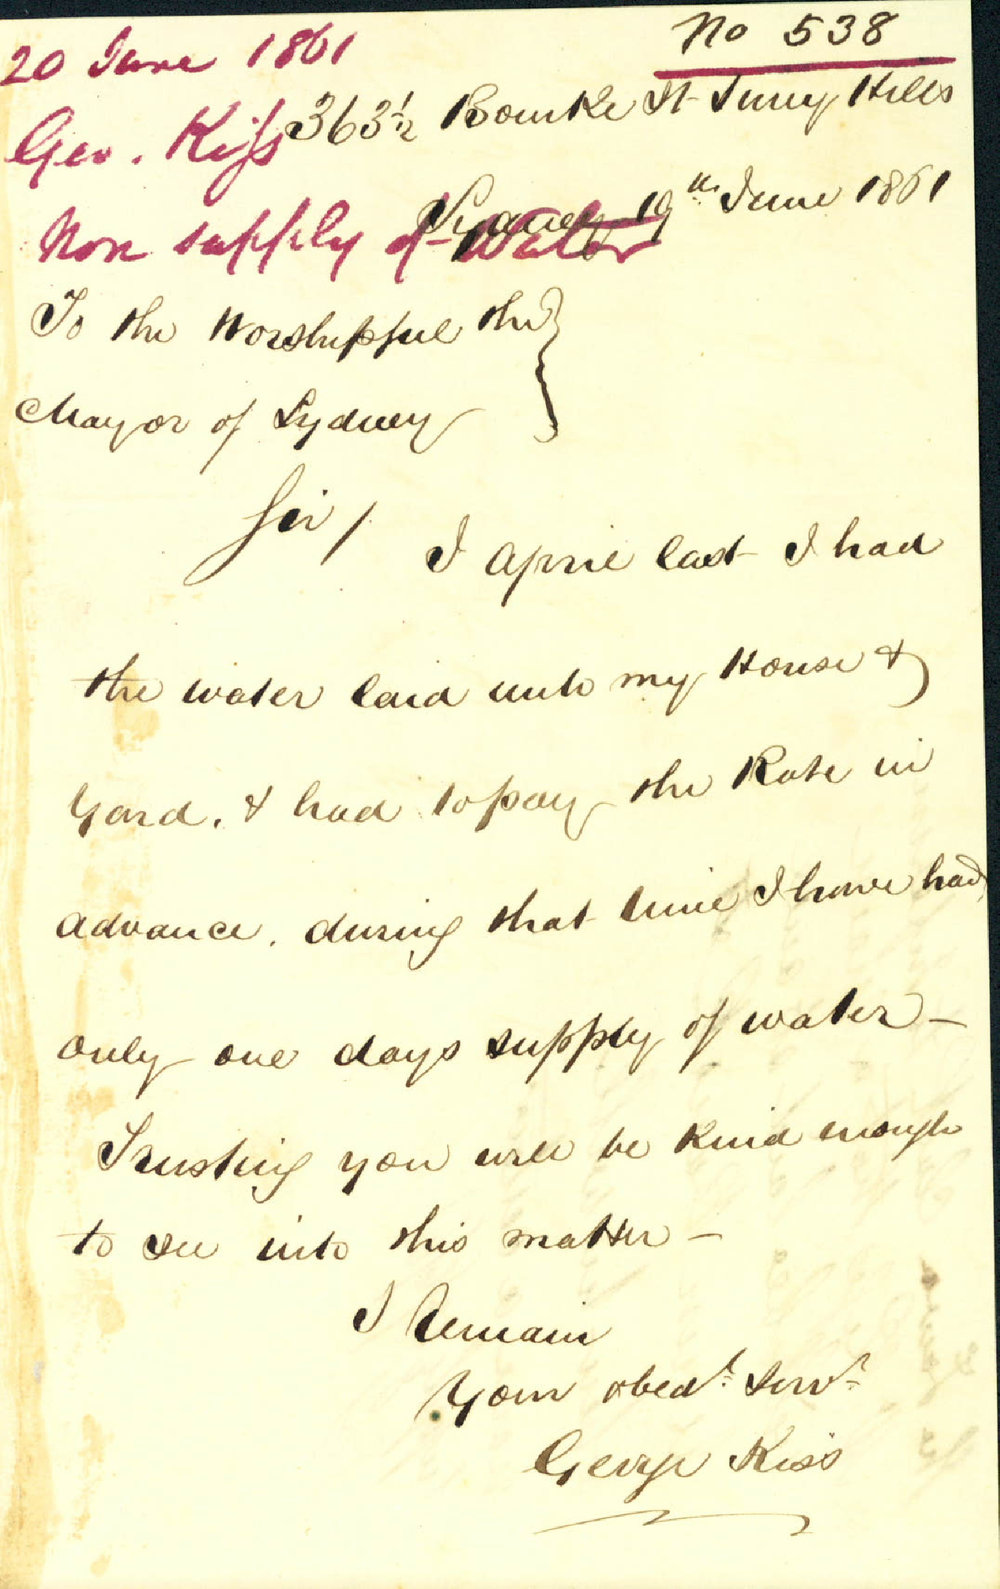 No 538
20 June 1861
Geo. Kiss
Non supply of Water
363½ Bourke St Surry Hills
Sydney 19th June 1861
To the Worshipful the
Mayor of Sydney
Sir/
I April last I had
the water laid unto my House &
Yard. & had to pay the Rate in
advance. during that time I have had
only one days supply of water –
Trusting you will be kind enough
to see into this matter –
I Remain
Your obedt. Servt.
George Kiss